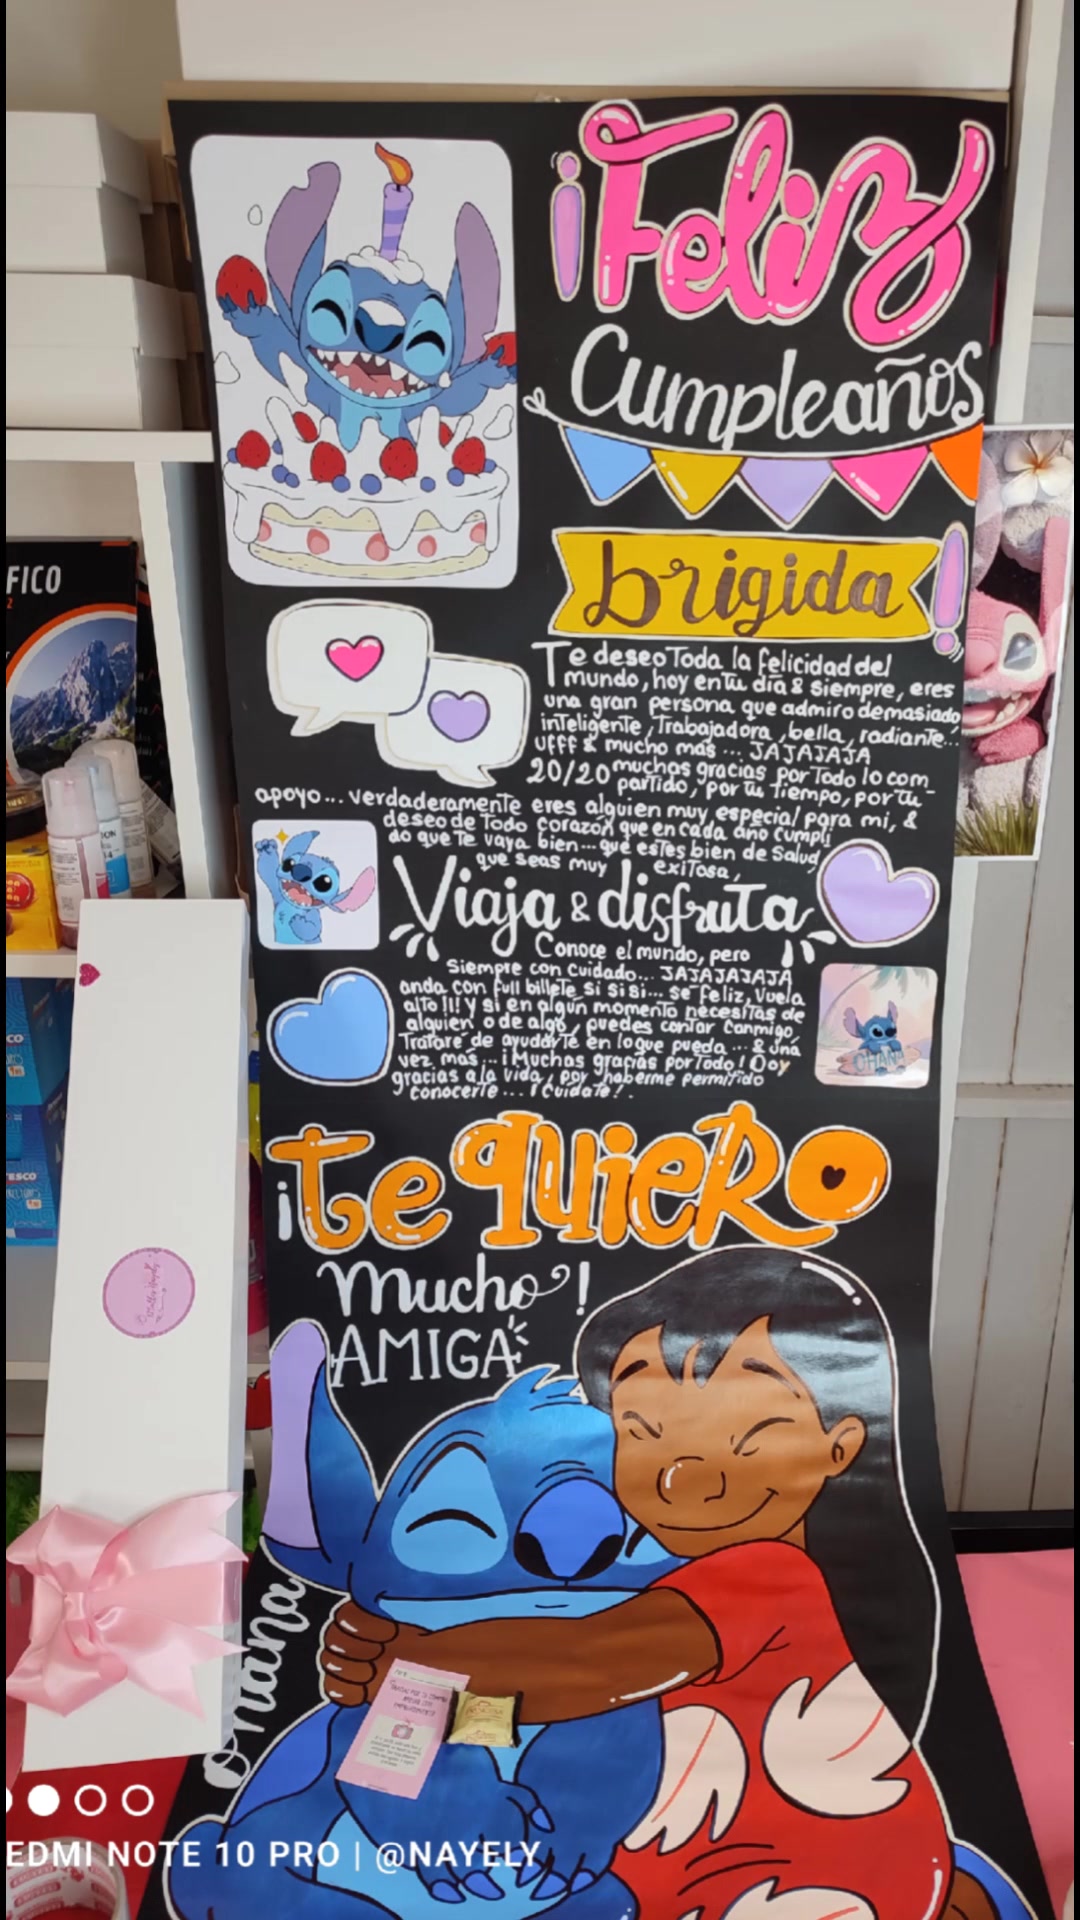 ¡Feliz
Cumpleaños
brigida!
Te deseo Toda la felicidad del
mundo, hoy en Tu día & Siempre, eres
una gran persona que admiro demasiado
inteligente, Trabajadora, bella, radiante...
UFFF & mucho mas... JAJAJAJA
20/20 muchas gracias por Todo lo com-
partido, por tu Tiempo, por Tu
apoyo... verdaderamente eres alguien muy especial para mi, &
deseo de Todo corazón que en cada año cumpli
do que Te vaya bien... que estes bien de Salud,
que seas muy exitosa,
Viaja & disfruTa
Conoce el mundo, pero
Siempre con cuidado... JAJAJAJAJA
anda con full billete Si Si Si... se feliz, Vuela
alto !!! Y si en algún momento necesitas de
alguien o de algo, puedes contar conmigo,
Trataré de ayudarte en lo que pueda... & una
vez mas... ¡Muchas gracias por Todo! Doy
gracias a la vida, por haberme permitido
conocerte... ¡Cuidate!.
OHANA
¡Te quieRo
Mucho!
AMIGA
Ohana
FICO
ESCO
EDMI NOTE 10 PRO | @NAYELY